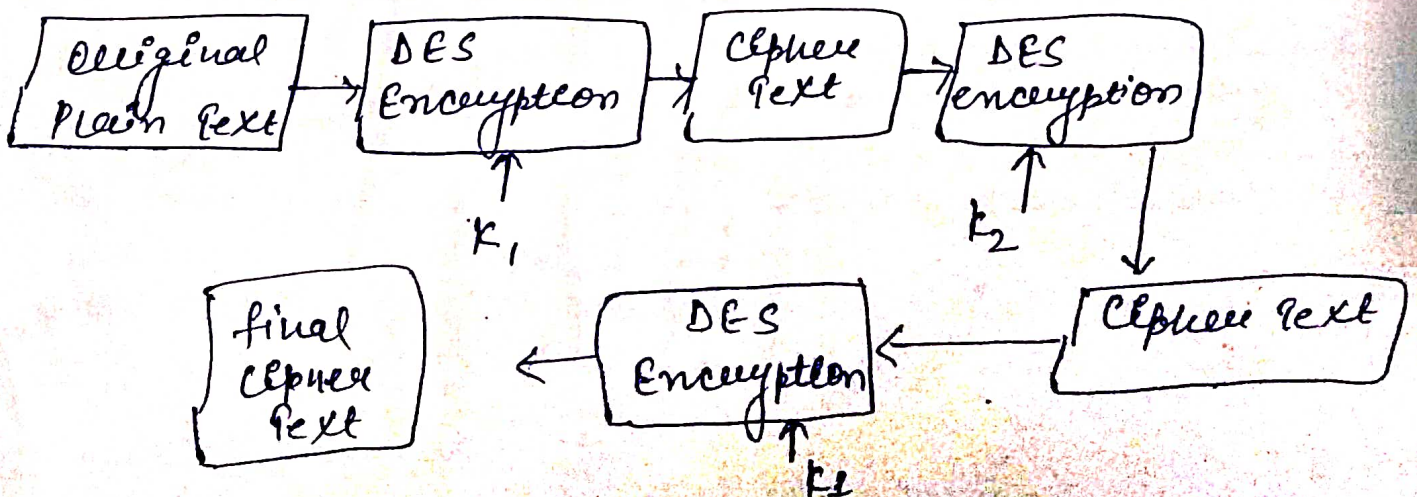 Original
Plain Text
DES
Encryption
Cipher
Text
DES
encryption
K1
K2
Cipher Text
DES
Encryption
final
cipher
Text
K1